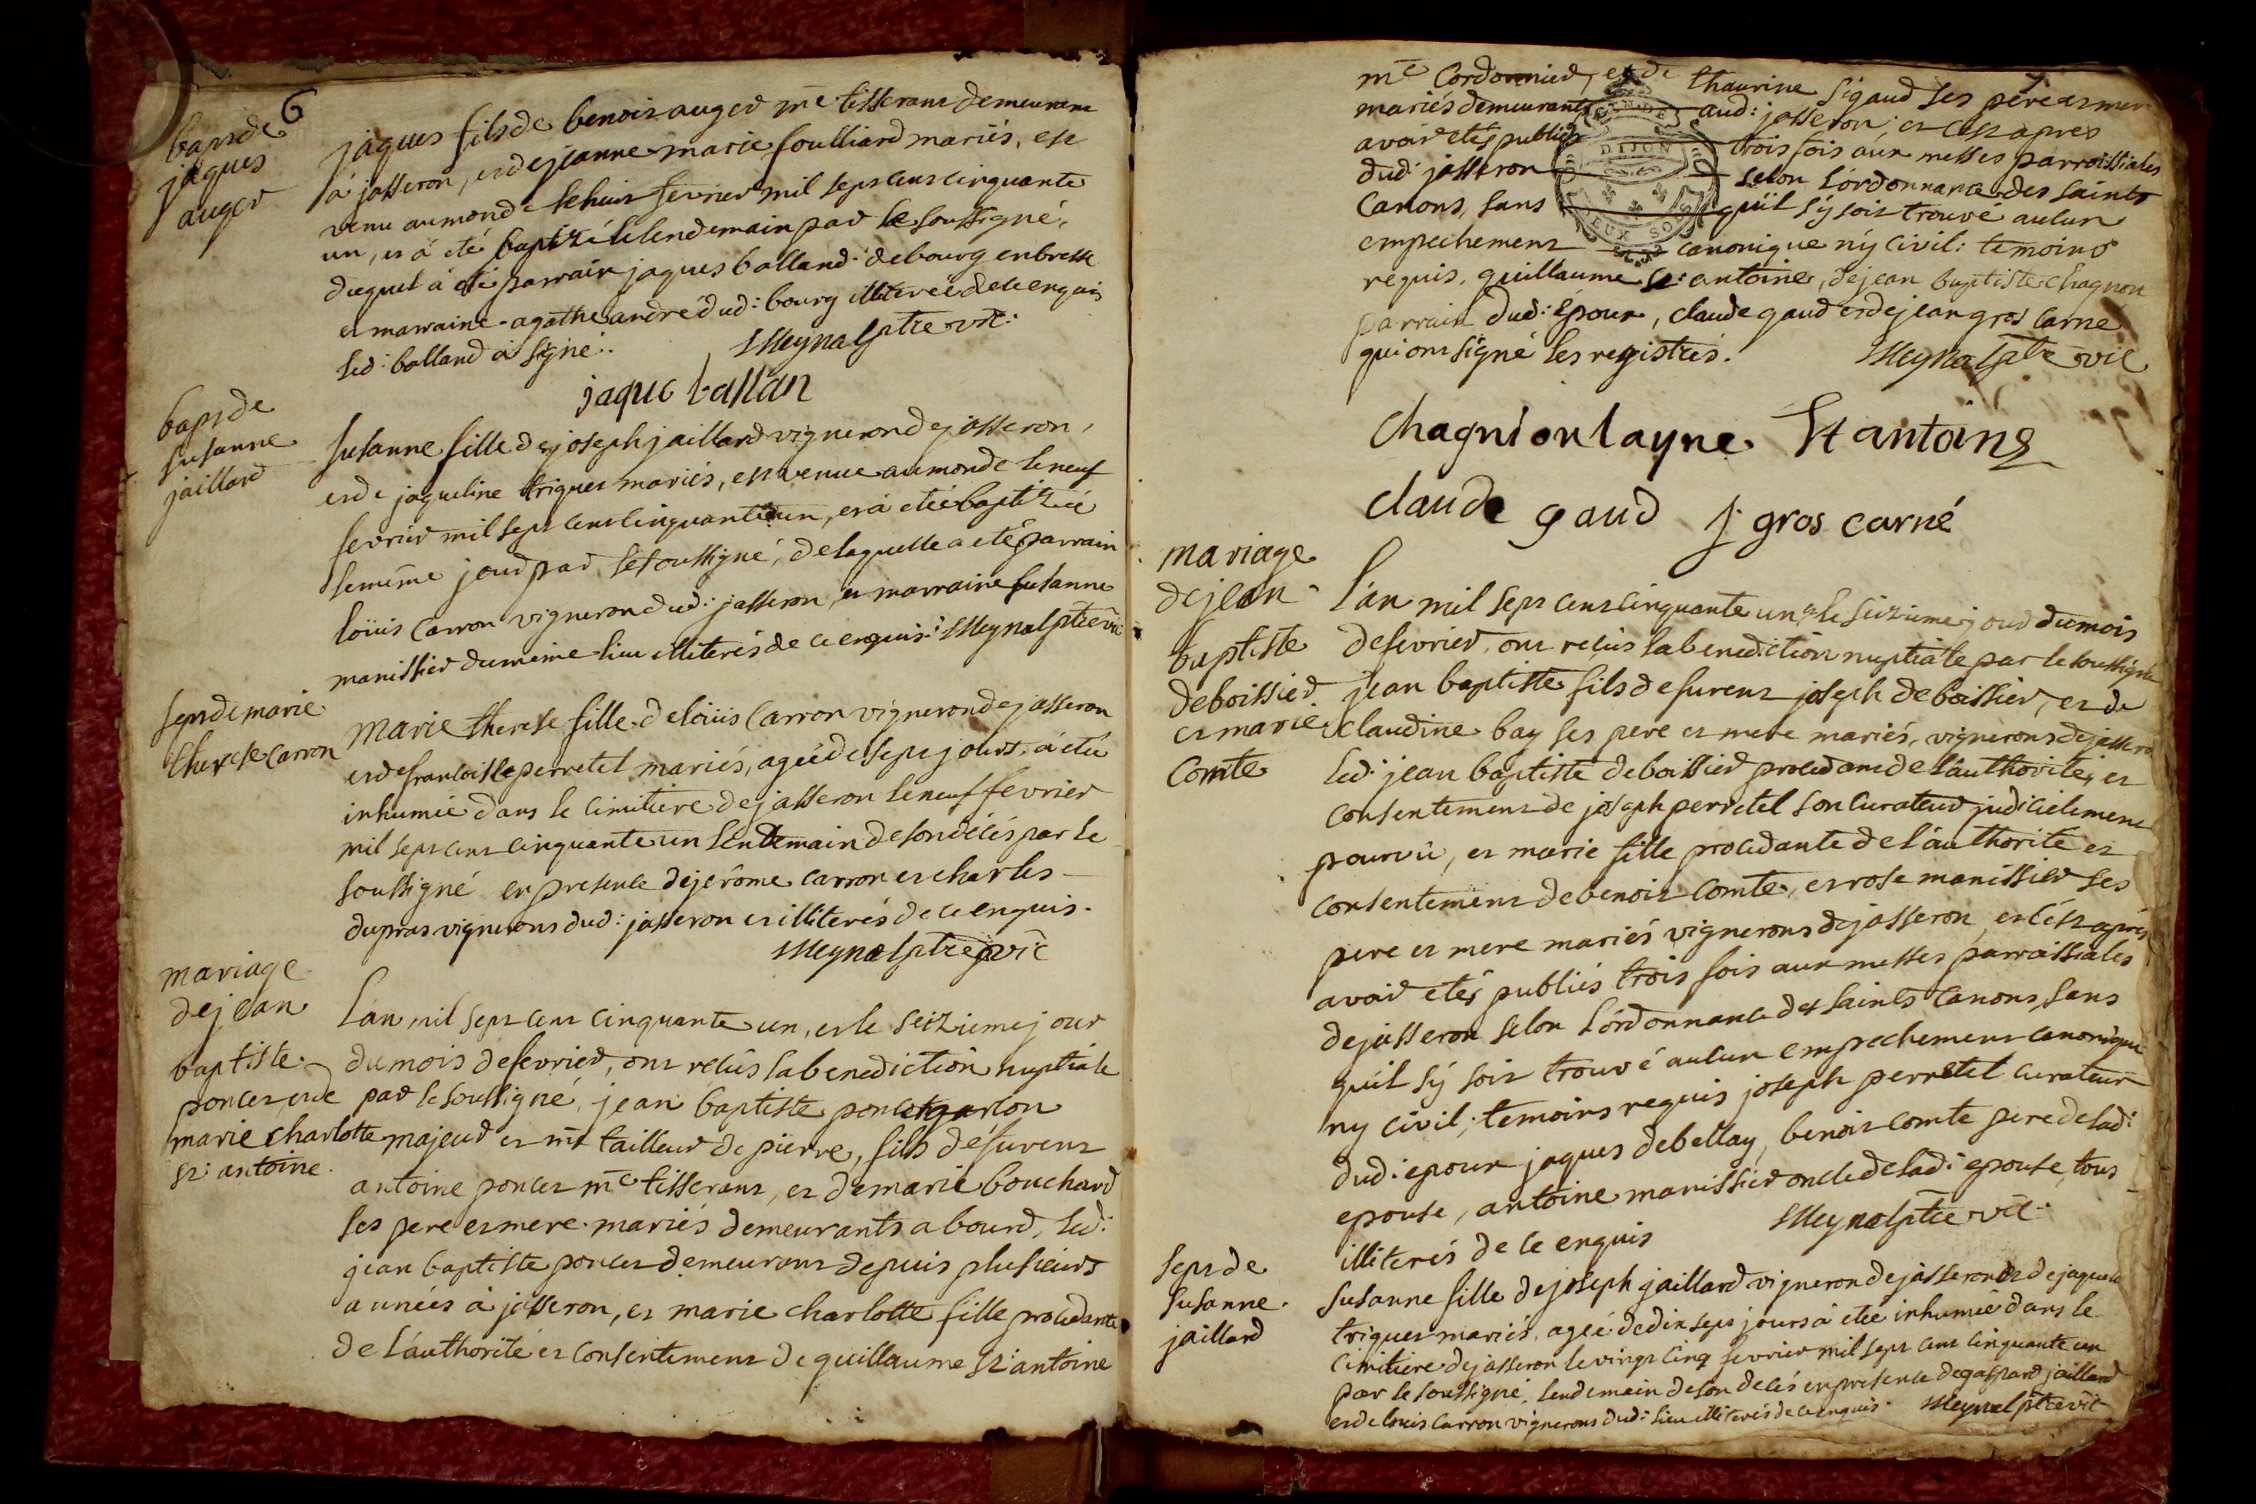 6
bapt de
jaques
auger
jaques fils de benoit auger me tisserant demeurant
à jasseron, et de jeanne marie foulliard mariés, est
venu au monde le huit fevrier mil sept cent cinquante
un, et à eté baptizé le lendemain par le soussigné,
duquel à eté parrain jaques balland de bourg en bresse
et marraine agathe andré dud: bourg illiterée de ce enquis
led: balland à signé.. Meynal ptre vic:
jaque ballan
bapt de
susanne
jaillard
susanne fille de joseph jaillard vigneron de jasseron,
et de jaqueline triquet mariés, est venue au monde le neuf
fevrier mil sept cent cinquante un, et à eteé baptizeé
le même jour par le soussigné, de laquelle a eté parrain
loüis Carron vigneron dud: jasseron, et marraine susanne
manissier du même lieu illiterés de ce enquis: Meynal ptre vic
sept de marie
therese carron
marie therese fille de loüis Carron vigneron de jasseron
et de francoise perretel mariés, ageé de sept jours, à eteé
inhumeé dans le cimitiere de jasseron le neuf fevrier
mil sept cent cinquante un lendemain de son décés par le
soussigné en presence de jerôme carron et charles
dupras vignerons dud: jasseron et illiterés de ce enquis.
Meynal ptre vic
mariage
de jean
baptiste
poncet et de
marie charlotte
st: antoine
L'an mil sept cent cinquante un, et le seizieme jour
du mois de fevrier, ont reçus la benediction nuptiale
par le soussigné, jean baptiste poncet garcon
majeur et me tailleur de pierre, fils défunt
antoine poncet me tisserant, et de marie bouchard
ses pere et mere mariés demeurants a bourd, led:
jean baptiste poncet demeurant depuis plusieurs
années à jasseron, et marie charlotte fille procedante
de l'áuthorité et consentement de guillaume st: antoine
me Cordonnier, et de thaurine sigaud ses pere et mere
mariés demeurants aud: jasseron; et c'est apres
avoir etés publiés trois fois aux messes parroissiales
dud: jasseron selon l'órdonnance des saints
Canons, sans qu'il s'y soit trouvé aucun
empechement canonique n'y civil: temoins
requis, guillaume st: antoine, de jean baptiste chagnon
parrain dud: époux, claude gaud et de jean gros carné
qui ont signé les registres. Meynal ptre vic
GEN DE
DIJON
DEUX SOLS
chagnion layne St antoine
claude gaud j gros carné
mariage
de jean
baptiste
deboissier
et marie
Comte
L'an mil sept cent cinquante un, et le seizieme jour du mois
de fevrier, ont reçus la benediction nuptiale par le soussigné
jean baptiste fils de furent joseph deboissier, et de
claudine bay ses pere et mere mariés, vignerons de jasseron
led: jean baptiste deboissier procedant de l'áuthorité, et
consentement de joseph perretel son curateur judicielement
pourvu, et marie fille procedante de l'áuthorité et
consentement de benoit comte, et rose manissier ses
pere et mere mariés vignerons de jasseron, et c'ést aprés
avoir etés publiés trois fois aux messes parroissiales
de jasseron selon l'órdonnance des saints canons, sans
qu'il s'y soit trouvé aucun empechement canonique
ny civil; temoins requis joseph perretel curateur
dud: epoux jaques debellay, benoit comte pere de lad:
epouse, antoine manissier oncle de lad: epouse, tous
illiterés de ce enquis Meynal ptre vic:
sept de
susanne
jaillard
susanne fille de joseph jaillard vigneron de jasseron et de jaqueline
triquet mariés, ageé de dix sept jours à eteé inhumeé dans le
cimitiere de jasseron le vingt cinq fevrier mil sept cent cinquante un
par le soussigné, lendemain de son decés en presence de gaspard jaillard
et de louis carron vignerons dud: lieu illiterés de ce enquis. Meynal ptre vic